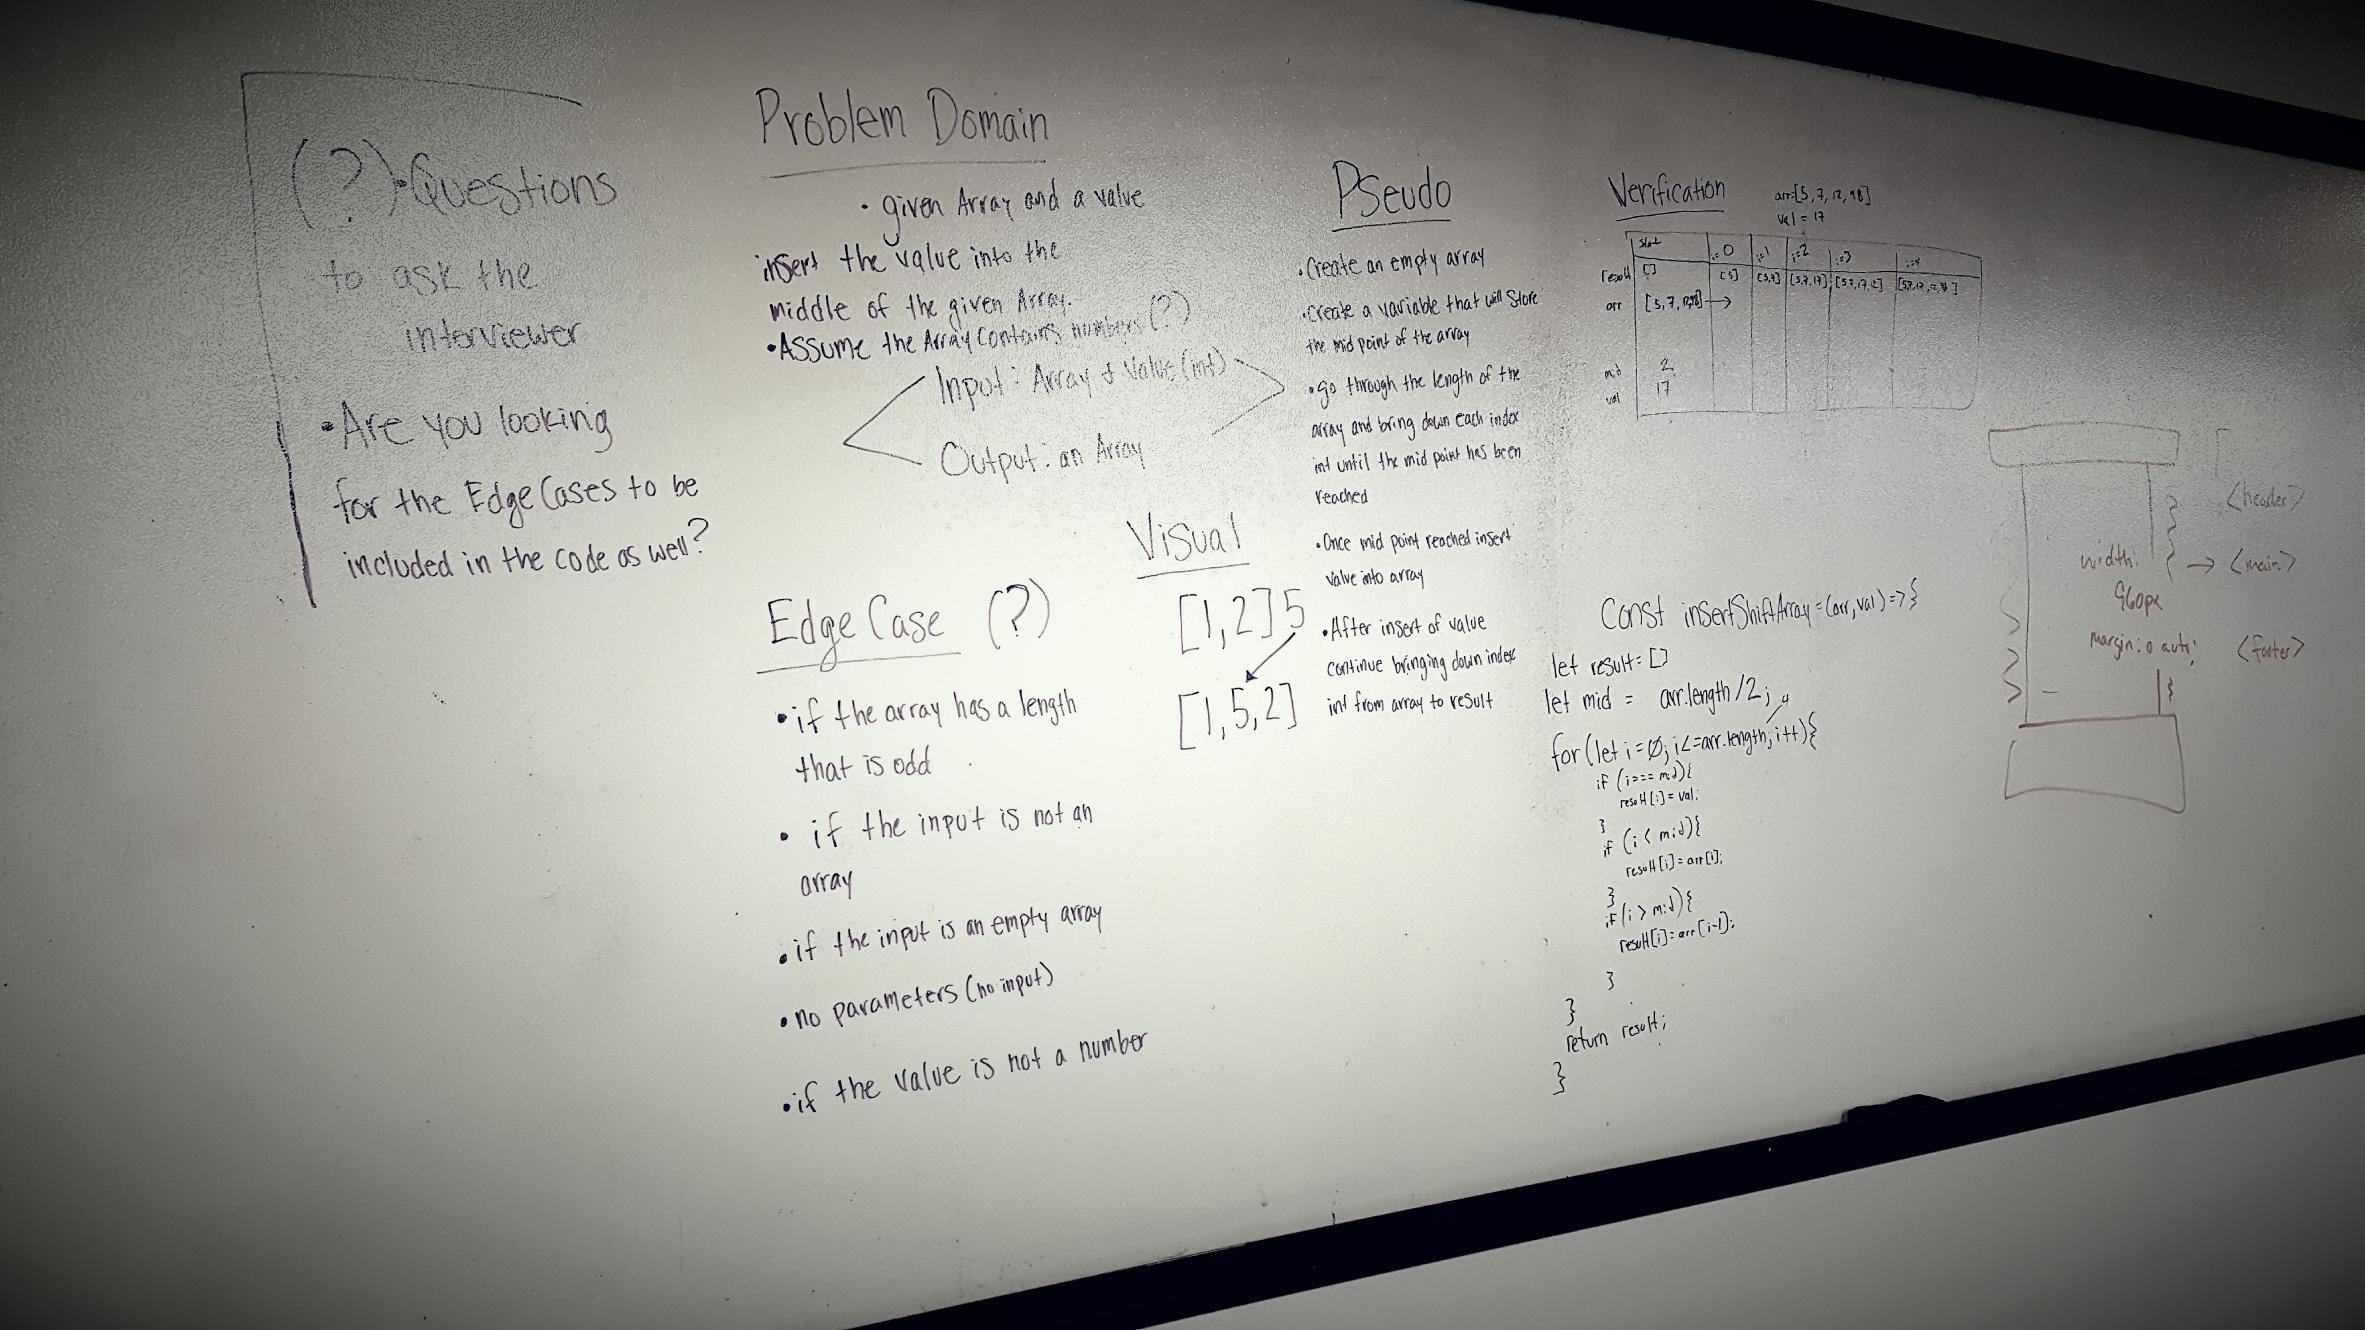 (?)•Questions
to ask the
interviewer
•Are you looking
for the Edge Cases to be
included in the code as well?
Problem Domain
• given Array and a value
insert the value into the
middle of the given Array.
•Assume the Array contains numbers (?)
Input: Array & Value(int)
Output: an Array
Visual
[1,2]5
[1,5,2]
Edge Case (?)
•if the array has a length
that is odd
• if the input is not an
array
•if the input is an empty array
•no parameters (no input)
•if the value is not a number
Pseudo
•Create an empty array
•Create a variable that will store
the mid point of the array
•go through the length of the
array and bring down each index
int until the mid point has been
reached
•Once mid point reached insert
value into array
•After insert of value
continue bringing down index
int from array to result
Verification
arr:[5,7,12,98]
val = 17
i=0 i=1 i=2 i=3 i=4
result [] [5] [5,7] [5,7,17] [5,7,17,12] [5,7,17,12,98]
arr [5,7,12,98]→
mid 2
val 17
Const insertShiftArray=(arr,val)=>{
let result=[]
let mid = arr.length/2;
for(let i=0; i<=arr.length; i++){
if (i===mid){
result[i]=val;
}
if (i < mid){
result[i]=arr[i];
}
if(i > mid){
result[i]=arr[i-1];
}
}
return result;
}
<header>
width:
960px
→ <main>
margin: 0 auto;
<footer>